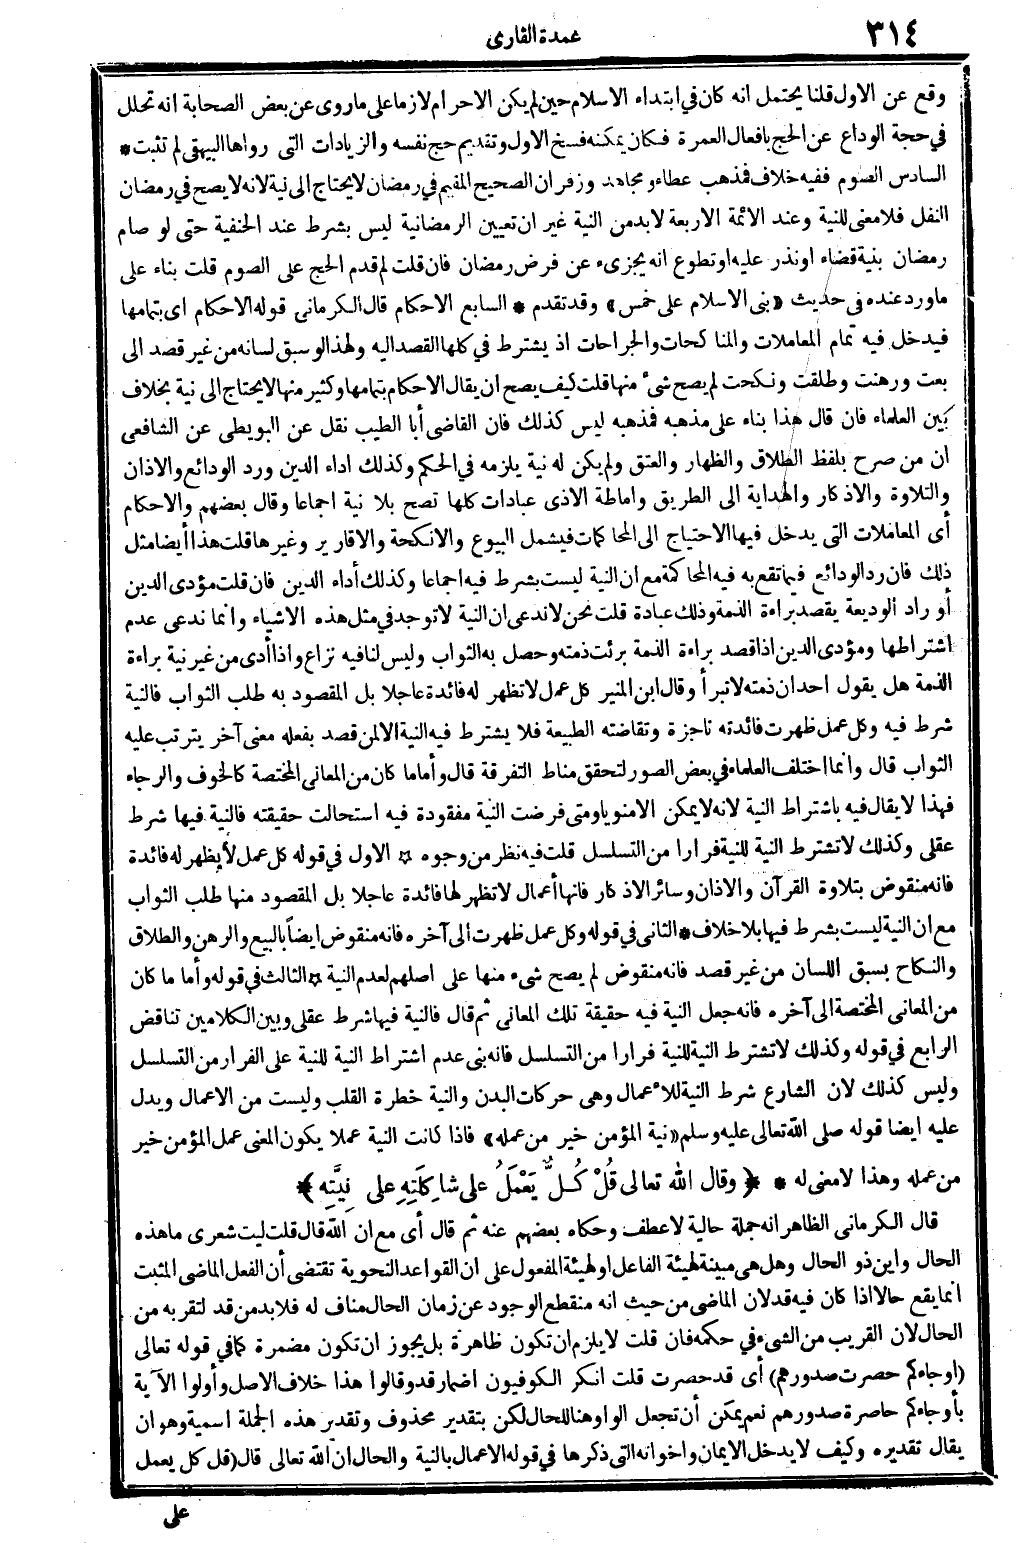 ٣١٤
عمدة القارى
وقع عن الاول قلنا يحتمل انه كان فى ابتداء الاسلام حين لم يكن الاحرام لازما على ماروى عن بعض الصحابة انه تحلل
فى حجة الوداع عن الحج بافعال العمرة فكان يمكنه فسخ الاول وتقديم حج نفسه والزيادات التى رواها البيهقى لم تثبت *
السادس الصوم ففيه خلاف فمذهب عطاء ومجاهد وزفر ان الصحيح المقيم فى رمضان لا يحتاج الى نية لانه لا يصح فى رمضان
النفل فلا معنى للنية وعند الائمة الاربعة لابد من النية غير ان تعيين الرمضانية ليس بشرط عند الحنفية حتى لو صام
رمضان بنية قضاء اونذر عليه اوتطوع انه يجزىء عن فرض رمضان فان قلت لم قدم الحج على الصوم قلت بناء على
ماورد عنده فى حديث «بنى الاسلام على خمس» وقد تقدم * السابع الاحكام قال الكرمانى قوله الاحكام اى بتمامها
فيدخل فيه تمام المعاملات والمناكحات والجراحات اذ يشترط فى كلها القصد اليه ولهذا لو سبق لسانه من غير قصد الى
بعت ورهنت وطلقت ونكحت لم يصح شىء منها قلت كيف يصح ان يقال الاحكام بتمامها وكثير منها لا يحتاج الى نية بخلاف
بين العلماء فان قال هذا بناء على مذهبه فمذهبه ليس كذلك فان القاضى أبا الطيب نقل عن البويطى عن الشافعى
ان من صرح بلفظ الطلاق والظهار والعتق ولم يكن له نية يلزمه فى الحكم وكذلك اداء الدين ورد الودائع والاذان
والتلاوة والاذكار والهداية الى الطريق واماطة الاذى عبادات كلها تصح بلا نية اجماعا وقال بعضهم والاحكام
أى المعاملات التى يدخل فيها الاحتياج الى المحاكمات فيشمل البيوع والانكحة والاقارير وغيرها قلت هذا أيضا مثل
ذلك فان رد الودائع فيما تقع به فيه المحاكمة مع ان النية ليست بشرط فيه اجماعا وكذلك أداء الدين فان قلت مؤدى الدين
أو راد الوديعة يقصد براءة الذمة وذلك عبادة قلت نحن لاندعى ان النية لاتوجد فى مثل هذه الاشياء وانما ندعى عدم
اشتراطها ومؤدى الدين اذا قصد براءة الذمة برئت ذمته وحصل به الثواب وليس لنا فيه نزاع واذا أدى من غير نية براءة
الذمة هل يقول احد ان ذمته لاتبرأ وقال ابن المنير كل عمل لاتظهر له فائدة عاجلا بل المقصود به طلب الثواب فالنية
شرط فيه وكل عمل ظهرت فائدته ناجزة وتقاضته الطبيعة فلا يشترط فيه النية الا لمن قصد بفعله معنى آخر يترتب عليه
الثواب قال وانما اختلف العلماء فى بعض الصور لتحقق مناط التفرقة قال وأما ما كان من المعانى المختصة كالخوف والرجاء
فهذا لا يقال فيه باشتراط النية لانه لا يمكن الا منويا ومتى فرضت النية مفقودة فيه استحالت حقيقته فالنية فيها شرط
عقلى وكذلك لاتشترط النية للنية فرارا من التسلسل قلت فيه نظر من وجوه * الاول فى قوله كل عمل لا يظهر له فائدة
فانه منقوض بتلاوة القرآن والاذان وسائر الاذكار فانها أعمال لاتظهر لها فائدة عاجلا بل المقصود منها طلب الثواب
مع ان النية ليست بشرط فيها بلا خلاف * الثانى فى قوله وكل عمل ظهرت الى آخره فانه منقوض ايضاً بالبيع والرهن والطلاق
والنكاح بسبق اللسان من غير قصد فانه منقوض لم يصح شىء منها على اصلهم لعدم النية * الثالث فى قوله وأما ما كان
من المعانى المختصة الى آخره فانه جعل النية فيه حقيقة تلك المعانى ثم قال فالنية فيها شرط عقلى وبين الكلامين تناقض
الرابع فى قوله وكذلك لاتشترط النية للنية فرارا من التسلسل فانه بنى عدم اشتراط النية للنية على الفرار من التسلسل
وليس كذلك لان الشارع شرط النية للاعمال وهى حركات البدن والنية خطرة القلب وليست من الاعمال ويدل
عليه ايضا قوله صلى الله تعالى عليه وسلم «نية المؤمن خير من عمله» فاذا كانت النية عملا يكون المعنى عمل المؤمن خير
من عمله وهذا لامعنى له * ﴿ وقال الله تعالى قُلْ كُلٌّ يَعْمَلُ على شاكِلَتِهِ على نِيَّتِهِ ﴾
قال الكرمانى الظاهر انه جملة حالية لاعطف وحكاه بعضهم عنه ثم قال أى مع ان الله قال قلت ليت شعرى ماهذه
الحال واين ذو الحال وهل هى مبينة لهيئة الفاعل اولهيئة المفعول على ان القواعد النحوية تقتضى أن الفعل الماضى المثبت
انما يقع حالا اذا كان فيه قد لان الماضى من حيث انه منقطع الوجود عن زمان الحال مناف له فلا بد من قد لتقربه من
الحال لان القريب من الشىء فى حكمه فان قلت لا يلزم ان تكون ظاهرة بل يجوز ان تكون مضمرة كما فى قوله تعالى
(اوجاءكم حصرت صدورهم) أى قد حصرت قلت انكر الكوفيون اضمار قد وقالوا هذا خلاف الاصل وأولوا الآية
بأوجاءكم حاصرة صدورهم نعم يمكن أن تجعل الواو هنا للحال لكن بتقدير محذوف وتقدير هذه الجملة اسمية وهو ان
يقال تقديره وكيف لا يدخل الايمان واخوانه التى ذكرها فى قوله الاعمال بالنية والحال ان الله تعالى قال (قل كل يعمل
على